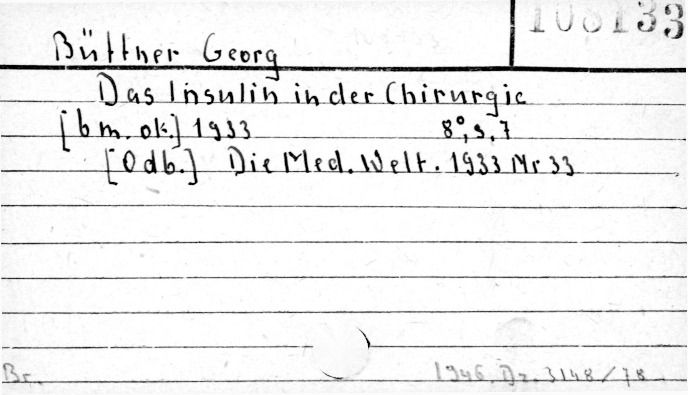 108133
Büttner Georg
Das Insulin in der Chirurgie
[b m. ok.] 1933 8°, s. 7
[Odb.] Die Med. Welt. 1933 Nr 33
Br. 1946. Dz. 3148/78.